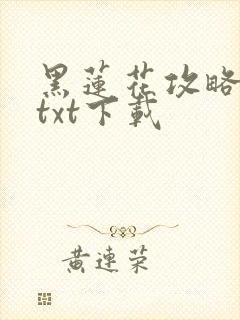 黑蓮花攻略
txt下載
黃連榮